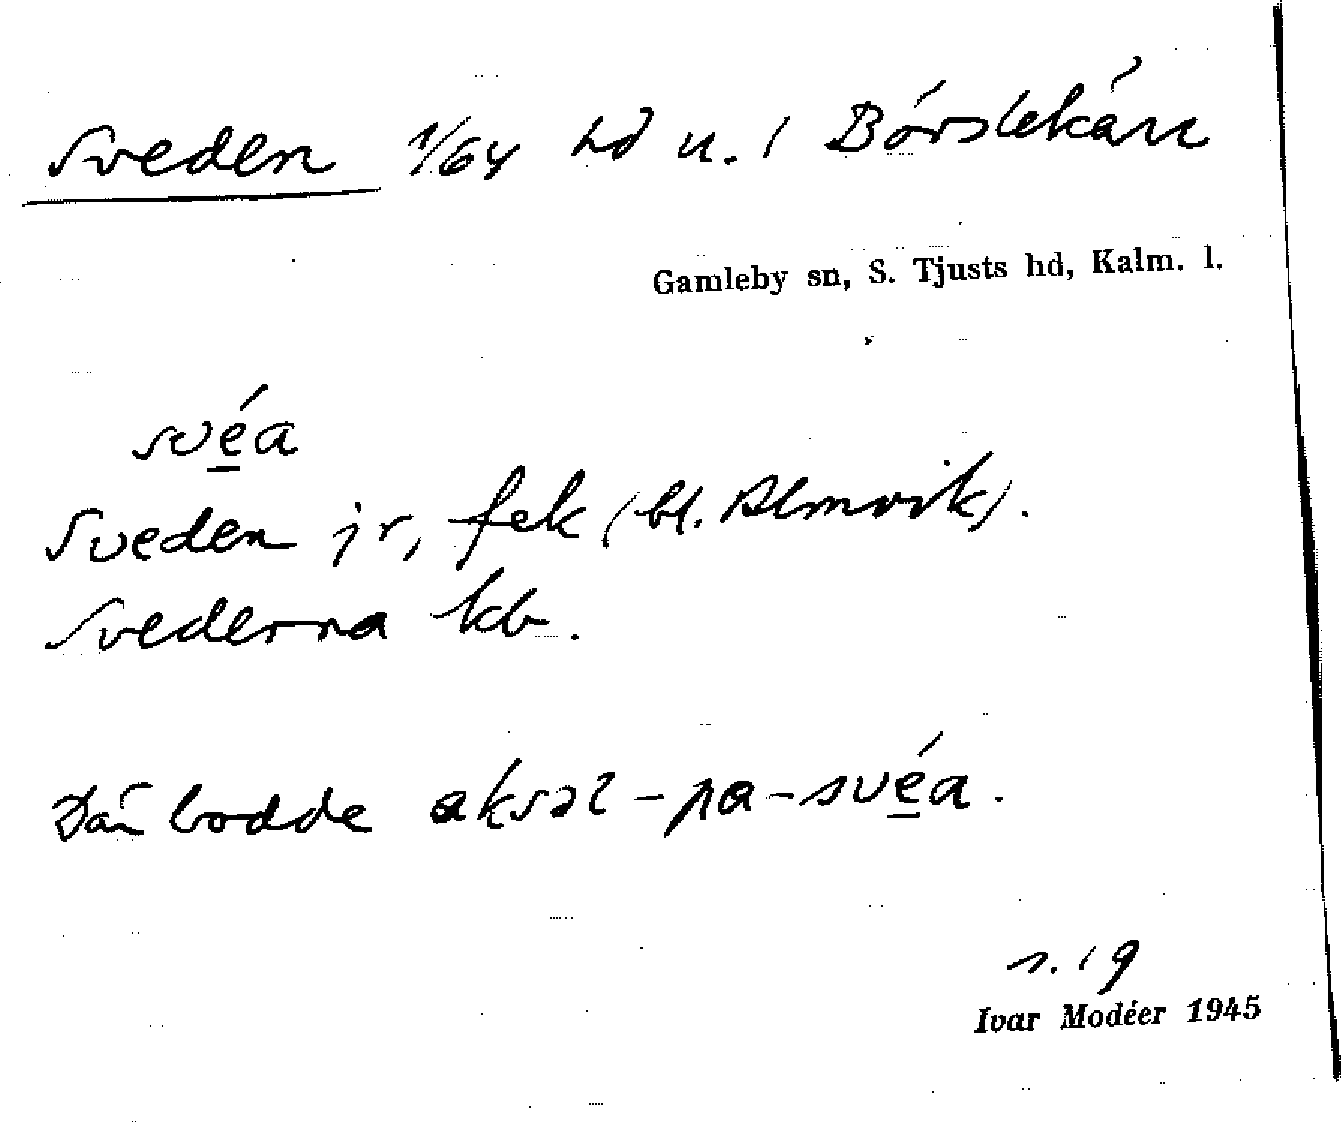 Sveden 1/64 hd u. / Börslekärr
Gamleby sn, S. Tjusts hd, Kalm. l.
svéa
Sveden jr, fek (bl. Almvik).
Svederna kb.
Där bodde aksəl-pa-svéa.
s. 19
Ivar Modéer 1945